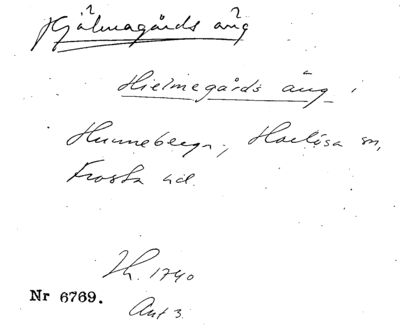 Hjälmagårds äng
Hielmegårds äng i
Hunneberga, Harlösa sn,
Frosta hd.
Lh. 1740
Nr 6769.
Ant 3.